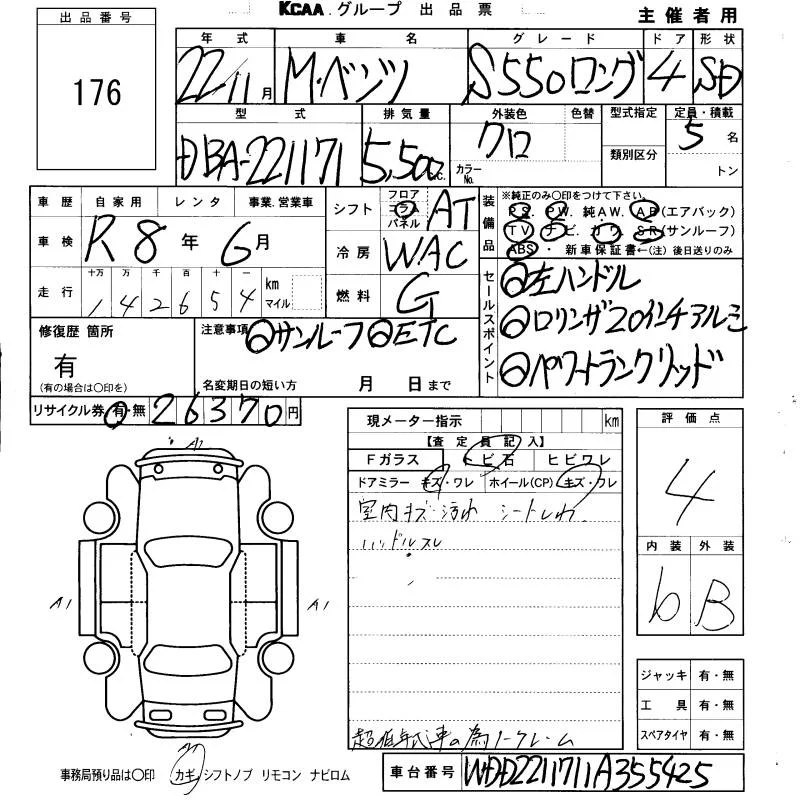 KCAA グループ 出品票
主催者用
出品番号
176
年式 車名 グレード ドア 形状
22/11月 M・ベンツ S550ロング 4 SD
型式 排気量 外装色 色替 型式指定 定員・積載
DBA-221171 5,500c.c. クロ カラーNo. 類別区分 5名
トン
車歴 自家用 レンタ 事業.営業車
車検 R8年6月
十万 万 千 百 十 一
走行 142654 km マイル
シフト フロア コラム パネル AT
冷房 WAC
燃料 G
装備品
※純正のみ○印をつけて下さい。
PS. PW. 純AW. AB(エアバック)
TV ナビ. カワ. SR(サンルーフ)
ABS ・ 新車保証書←(注)後日送りのみ
セールスポイント
左ハンドル
ロリンザ20インチアルミ
パワートランクリッド
修復歴 箇所
有
(有の場合は○印を)
注意事項 サンルーフ ETC
名変期日の短い方 月 日まで
リサイクル券 有・無 26370円
現メーター指示 km
【査定員記入】
Fガラス トビ石 ヒビワレ
ドアミラー キズ・ワレ ホイール(CP) キズ・フレ
室内キズ 汚れ シートしわ
ハンドルスレ
超低年式車の為ノークレーム
評価点
4
内装 外装
b B
ジャッキ 有・無
工具 有・無
スペアタイヤ 有・無
A1
A1
A1
事務局預り品は○印 カギ シフトノブ リモコン ナビロム
車台番号 WDD2211711A355425